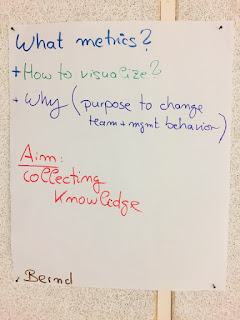 What metrics?
+ How to visualize?
+ Why (purpose to change
team + mgmt behavior)
Aim:
Collecting
Knowledge
Bernd